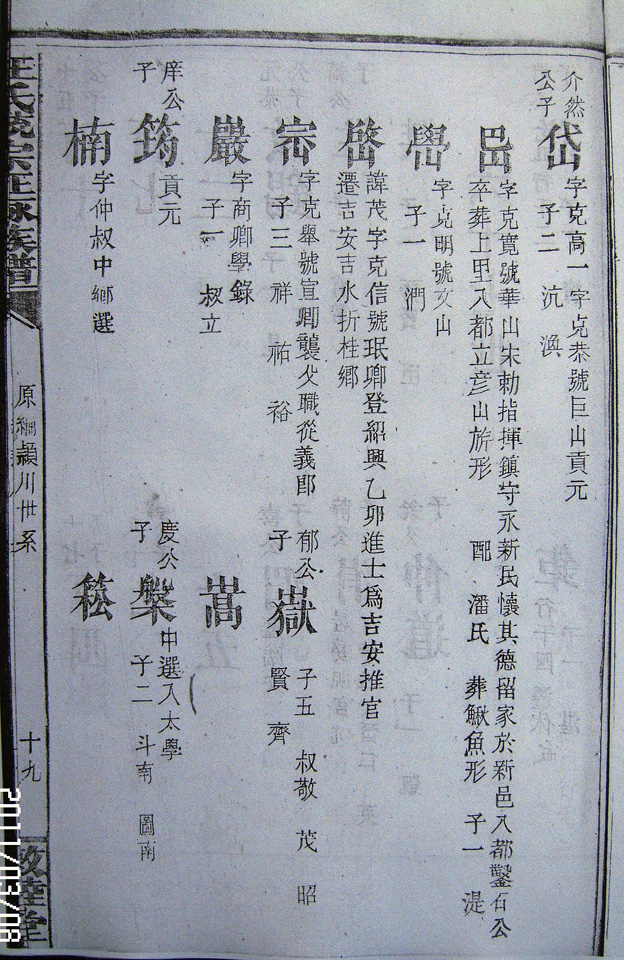 介然
公子
岱
字克高一字克恭號巨山貢元
子二 沆 渙
字克寬號華山宋勅指揮鎮守永新民懷其德留家於新邑入都鑿石公
卒葬上里入都立彥山旂形 配 潘氏 葬鰍魚形 子一 湜
嶨
字克明號文山
子一 潤
諱茂字克信號珉卿登紹興乙卯進士爲吉安推官
遷吉安吉水折桂鄉
字克舉號宣卿襲父職從義郎
子三 祥 祐 裕
郁公
子
嶽
子五 叔敬 茂 昭
賢 齊
巖
字商卿學錄
子一 叔立
嵩
庠公
子
筠
貢元
慶公
子
槃
中選入太學
子二 斗南 圖南
楠
字仲叔中鄉選
筵
汪氏統宗正脉族譜
原綱潁川世系
十九
敦睦堂
2011/03/08